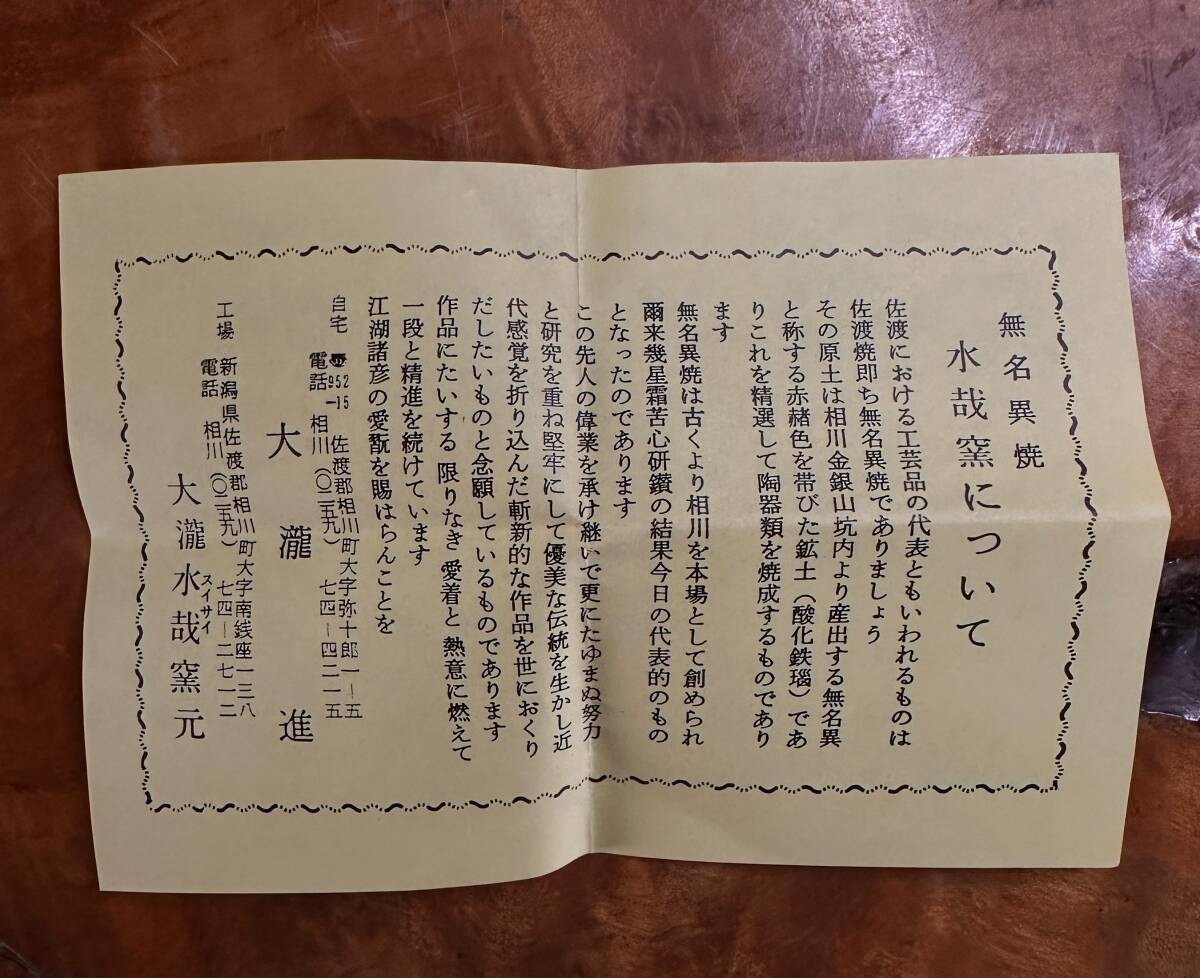 無名異焼
水哉窯について
佐渡における工芸品の代表ともいわれるものは
佐渡焼即ち無名異焼でありましょう
その原土は相川金銀山坑内より産出する無名異
と称する赤赭色を帯びた鉱土（酸化鉄瑙）であ
りこれを精選して陶器類を焼成するものであり
ます
無名異焼は古くより相川を本場として創められ
爾来幾星霜苦心研鑽の結果今日の代表的のもの
となったのであります
この先人の偉業を承け継いで更にたゆまぬ努力
と研究を重ね堅牢にして優美な伝統を生かし近
代感覚を折り込んだ斬新的な作品を世におくり
だしたいものと念願しているものであります
作品にたいする 限りなき 愛着と 熱意に燃えて
一段と精進を続けています
江湖諸彦の愛翫を賜はらんことを
自宅 〠952-15 佐渡郡相川町大字弥十郎一ー五
電話 相川（〇二五九）七四ー四二一五
大瀧 進
工場 新潟県佐渡郡相川町大字南銭座一三八
電話 相川（〇二五九）七四ー二七一二
大瀧水哉窯元
スイサイ